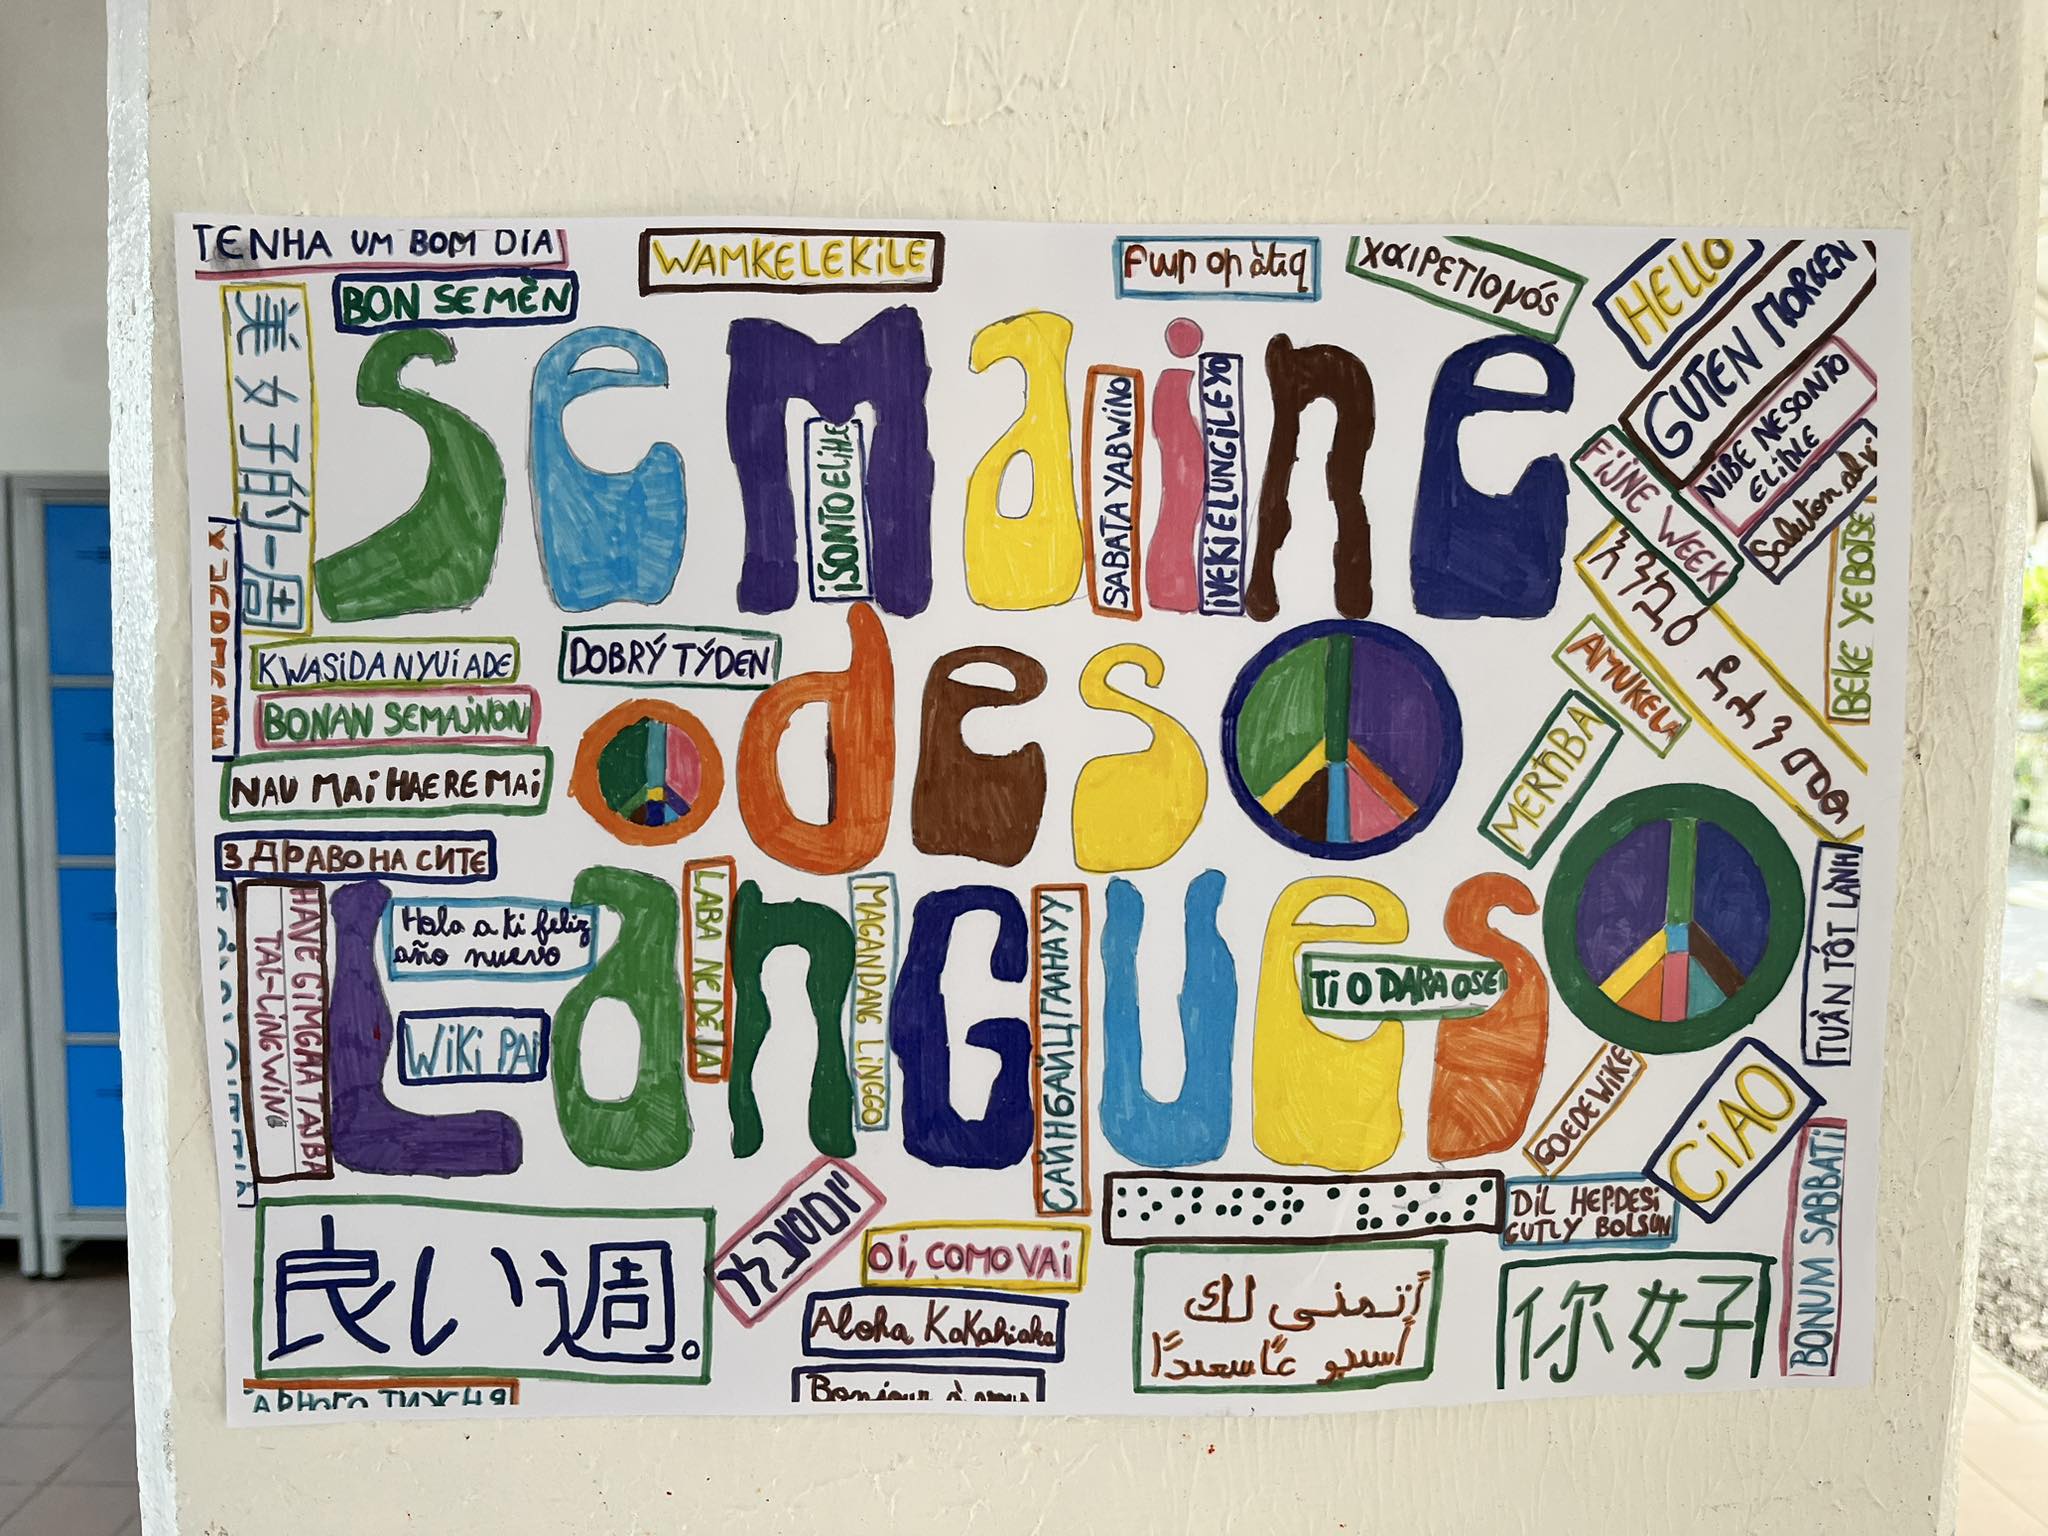 TENHA UM BOM DIA
BON SEMÈN
WAMKELEKILE
χαιρετισμός
HELLO
GUTEN MORGEN
NIBE NESONTO
ELIHLE
Saluton al vi
FIJNE WEEK
BEKE YEBOTSE
semaine
ISONTO ELIHLE
SABATA YABWINO
IVEKI ELUNGILEYO
美女子的一居
KWASIDA NYUIADE
DOBRÝ TÝDEN
BONAN SEMAJNON
NAU MAI HAERE MAI
des
AMUKELA
MERĦBA
እንደዕ
ЗДРАВО НА СИТЕ
HAVE GIMGHA TAJBA
TAL-LINGWING
Hola a ti feliz
año nuevo
WIKI PAI
Langues
LABA NEDĒĻA
MAGANDANG LINGGO
САЙН БАЙЦГААНАУУ
TI O DARA OSE
TUẦN TỐT LÀNH
GOEDE WIKE
CIAO
BONUM SABBATI
DIL HEPDESI
GUTLY BOLSUN
良い週。
OI, COMO VAI
Aloha Kakahiaka
أتمنى لك
أسبوعًا سعيدًا
你好
АРНОГО ТИЖНЯ
Bonjour à